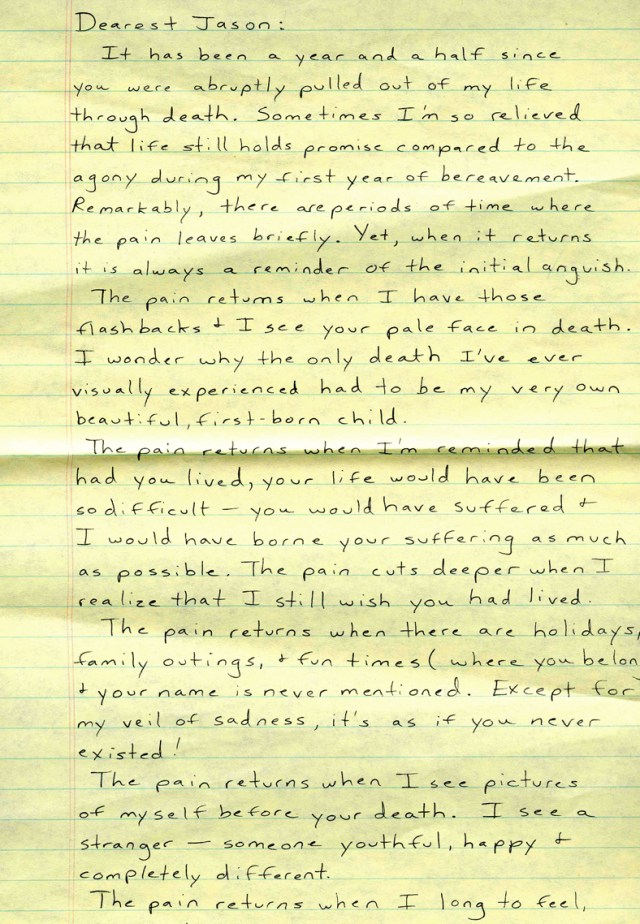 Dearest Jason:
It has been a year and a half since
you were abruptly pulled out of my life
through death. Sometimes I'm so relieved
that life still holds promise compared to the
agony during my first year of bereavement.
Remarkably, there are periods of time where
the pain leaves briefly. Yet, when it returns
it is always a reminder of the initial anguish.
The pain returns when I have those
flashbacks + I see your pale face in death.
I wonder why the only death I've ever
visually experienced had to be my very own
beautiful, first-born child.
The pain returns when I'm reminded that
had you lived, your life would have been
so difficult — you would have suffered +
I would have borne your suffering as much
as possible. The pain cuts deeper when I
realize that I still wish you had lived.
The pain returns when there are holidays,
family outings, + fun times (where you belon
+ your name is never mentioned. Except for
my veil of sadness, it's as if you never
existed!
The pain returns when I see pictures
of myself before your death. I see a
stranger — someone youthful, happy +
completely different.
The pain returns when I long to feel,